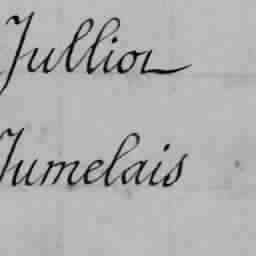 Jullion
Jumelais